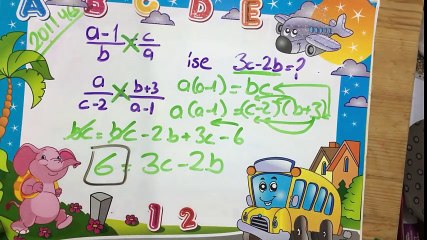 A B C D E
2011 YGS
a-1/b × c/a
ise 3c-2b=?
a/c-2 × b+3/a-1
a(a-1)=bc
a(a-1)=(c-2)(b+3)
bc=bc-2b+3c-6
6=3c-2b
1 2